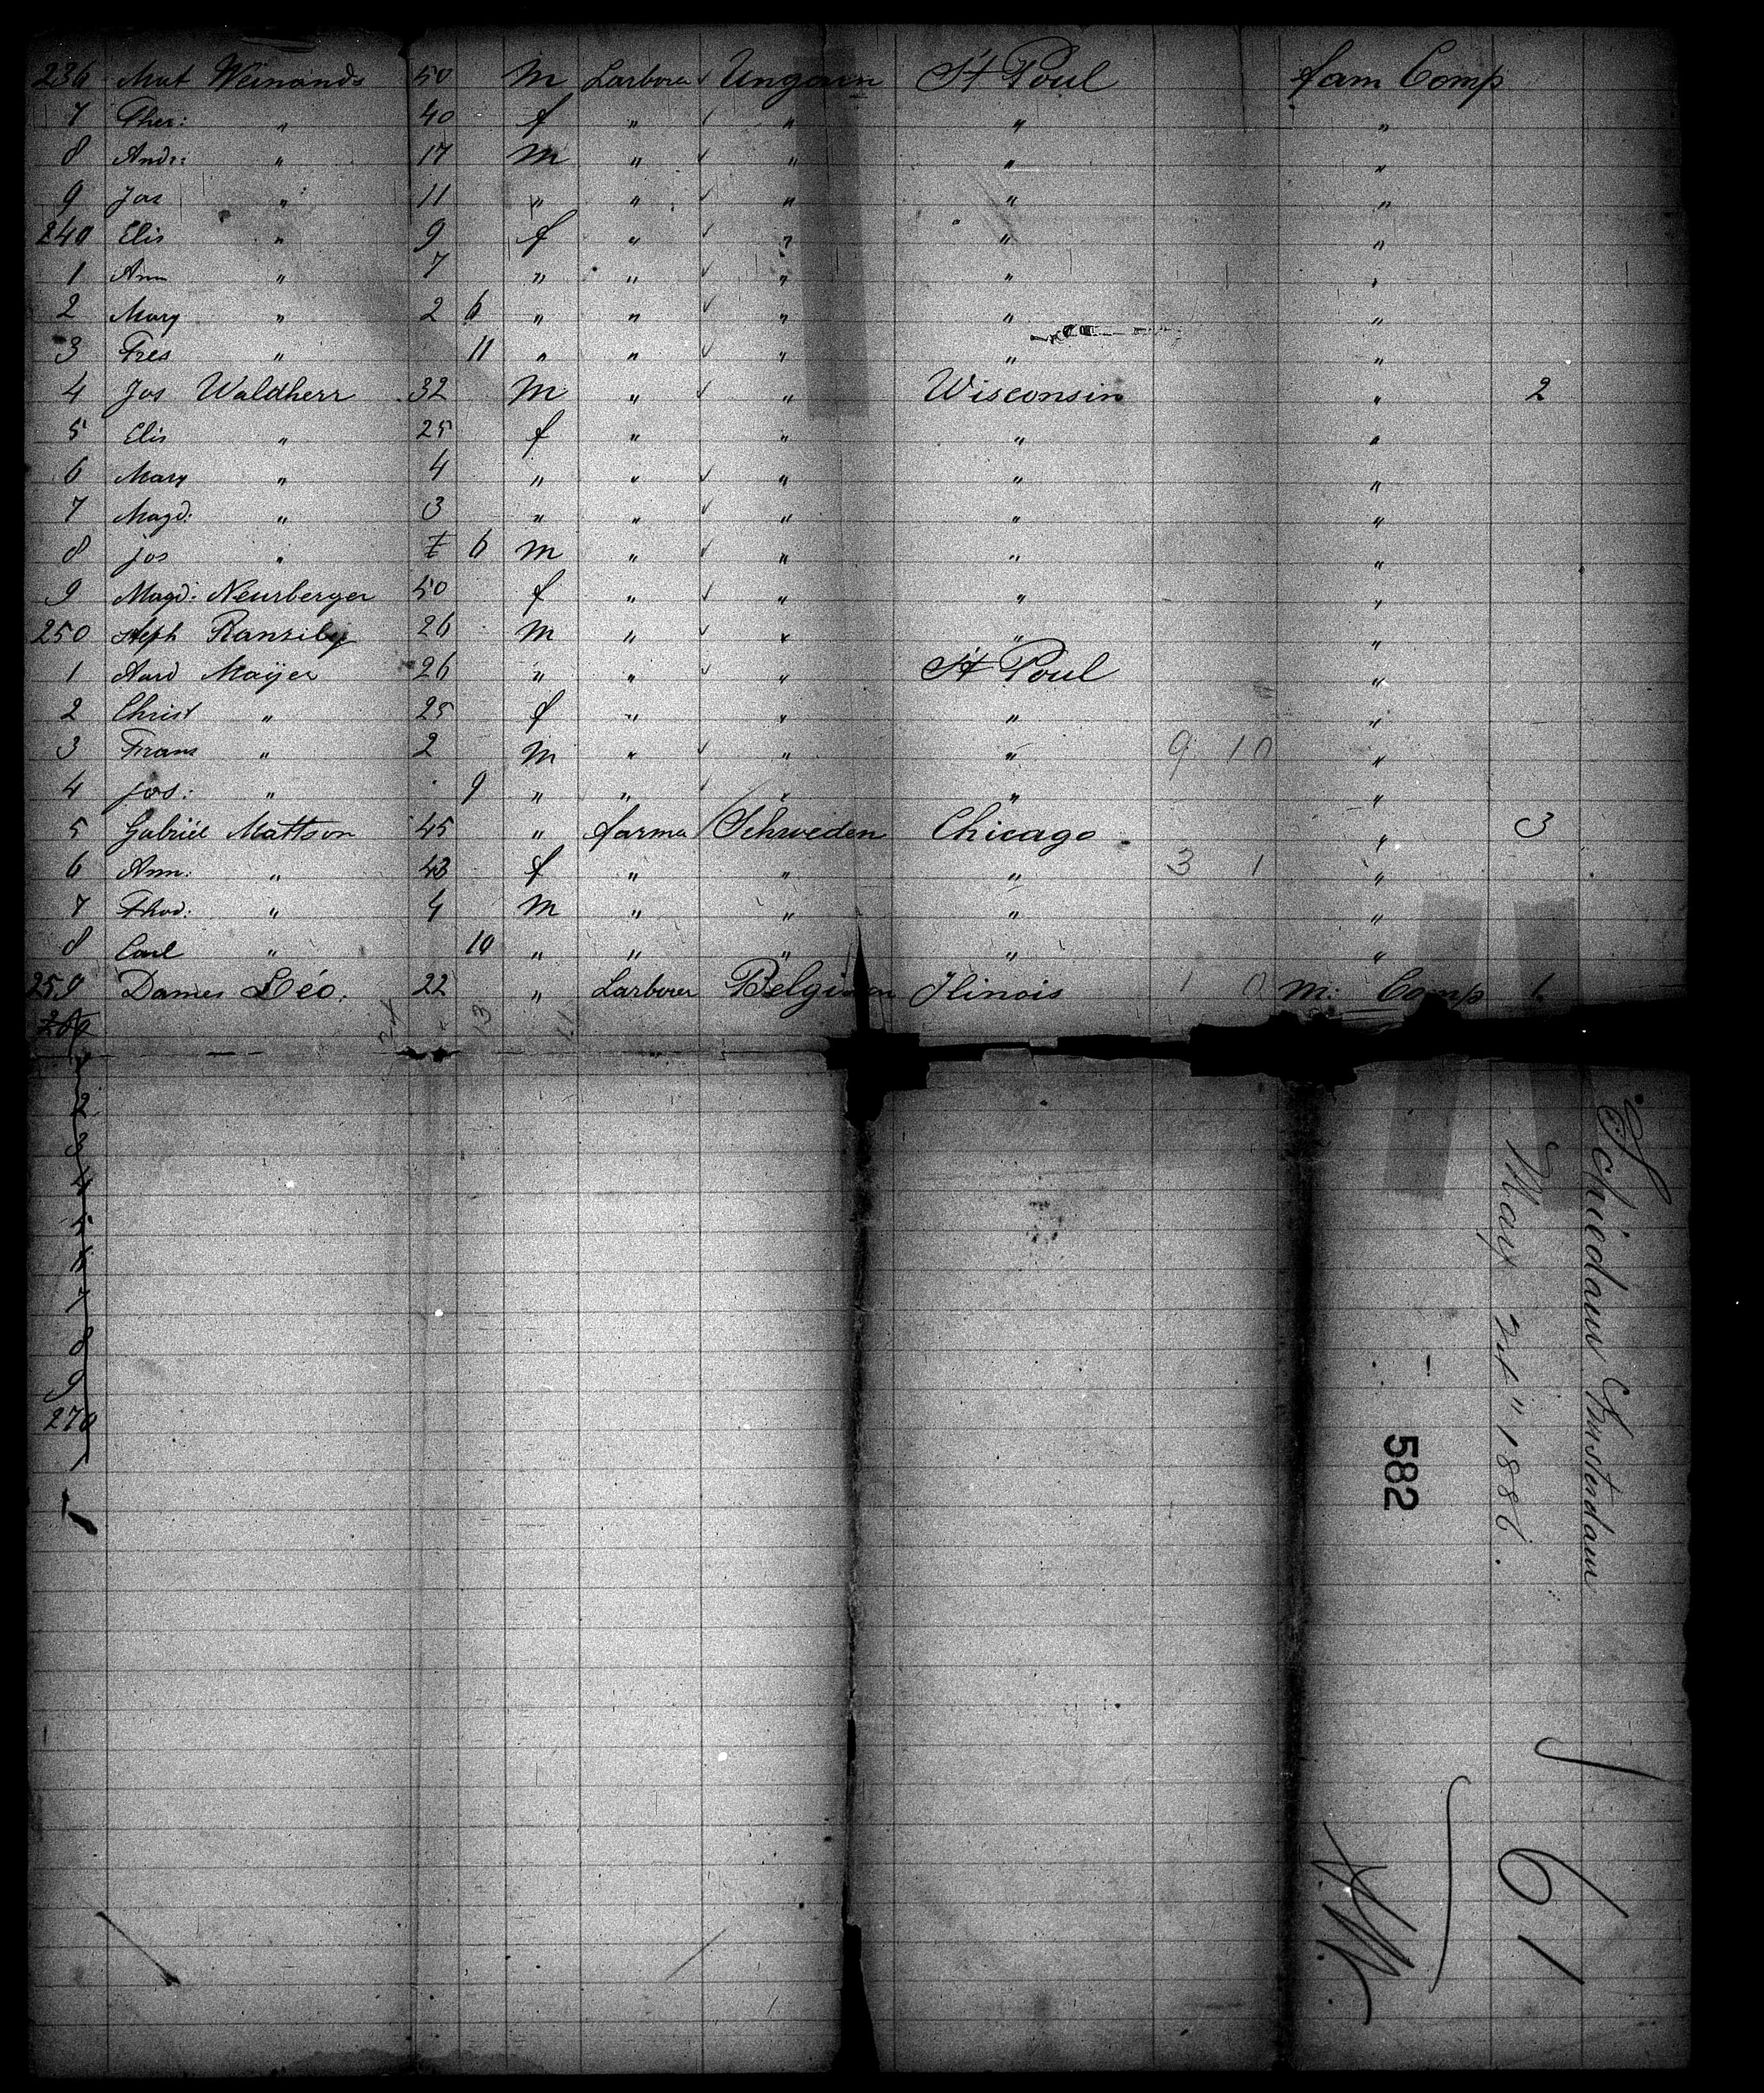 236 Mat Weinands 50 M Larborer ✓ Ungarn St Poul fam Comp
7 Ther: " 40 f " ✓ " " "
8 Andr: " 17 M " ✓ " " "
9 Jos " 11 " " ✓ " " "
240 Elis " 9 f " ✓ " " "
1 Ann " 7 " " ✓ " " "
2 Mary " 2 6 " " ✓ " " "
3 Tres " 11 " " ✓ " " "
4 Jos Waldherr 32 M " ✓ " Wisconsin " 2
5 Elis " 25 f " " " "
6 Mary " 4 " " ✓ " " "
7 Magd: " 3 " " ✓ " " "
8 Jos " 6 M " ✓ " " "
9 Magd: Neurberger 50 f " ✓ " " "
250 Steph 26 M " ✓ " " "
1 Mayer 26 " " ✓ " St Poul "
2 Christ " 25 f " " " "
3 Frans " 2 M " ✓ " " 9 10 "
4 Jos: " 9 " " ✓ " " "
5 Gabriël Mattson 45 " farmer Schweden Chicago " 3
6 Ann: " 43 f " " " 3 1 "
7 Thod: " 4 M " " " "
8 Carl " 10 " " " " "
259 Dames Léo. 22 " Larborer Belgien Ilinois 1 0 M: Comp 1
260
1
2
3
4
5
6
7
8
9
270
13 11
Schiedam Amsterdam
May 1886.
582
61